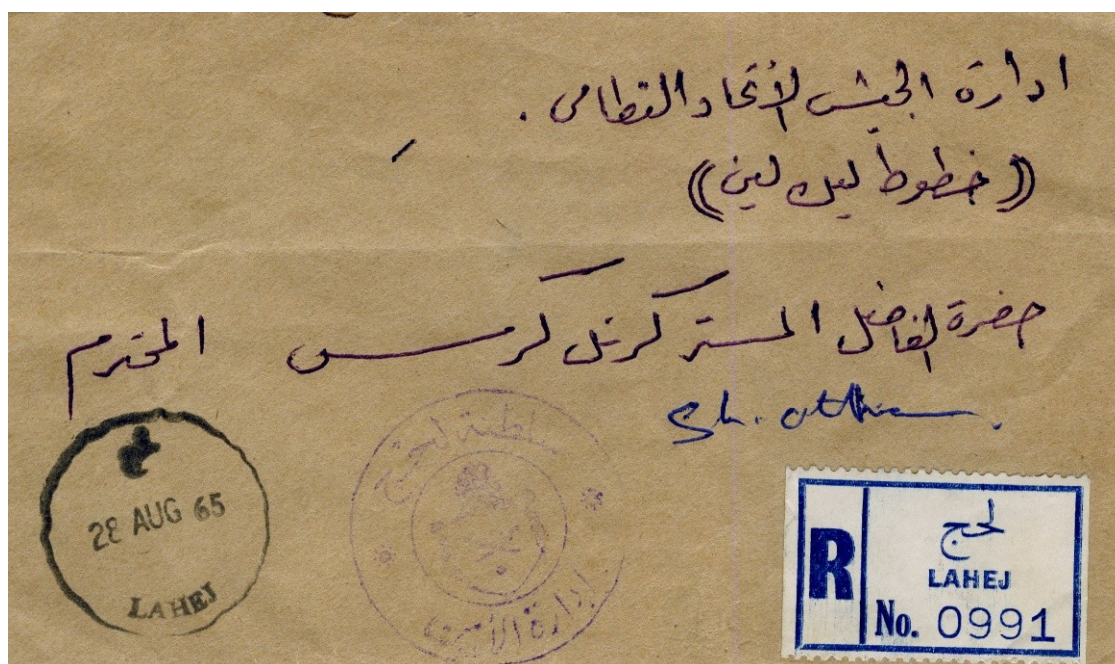 ادارة الجيش الأتحاد النظامي .
((خطوط ليك لين))
حضرة الفاضل المستر كرنل كرمس المحترم
Sh. Othman.
28 AUG 65
LAHEJ
سلطنة لحج
إدارة
R
لحج
LAHEJ
No. 0991